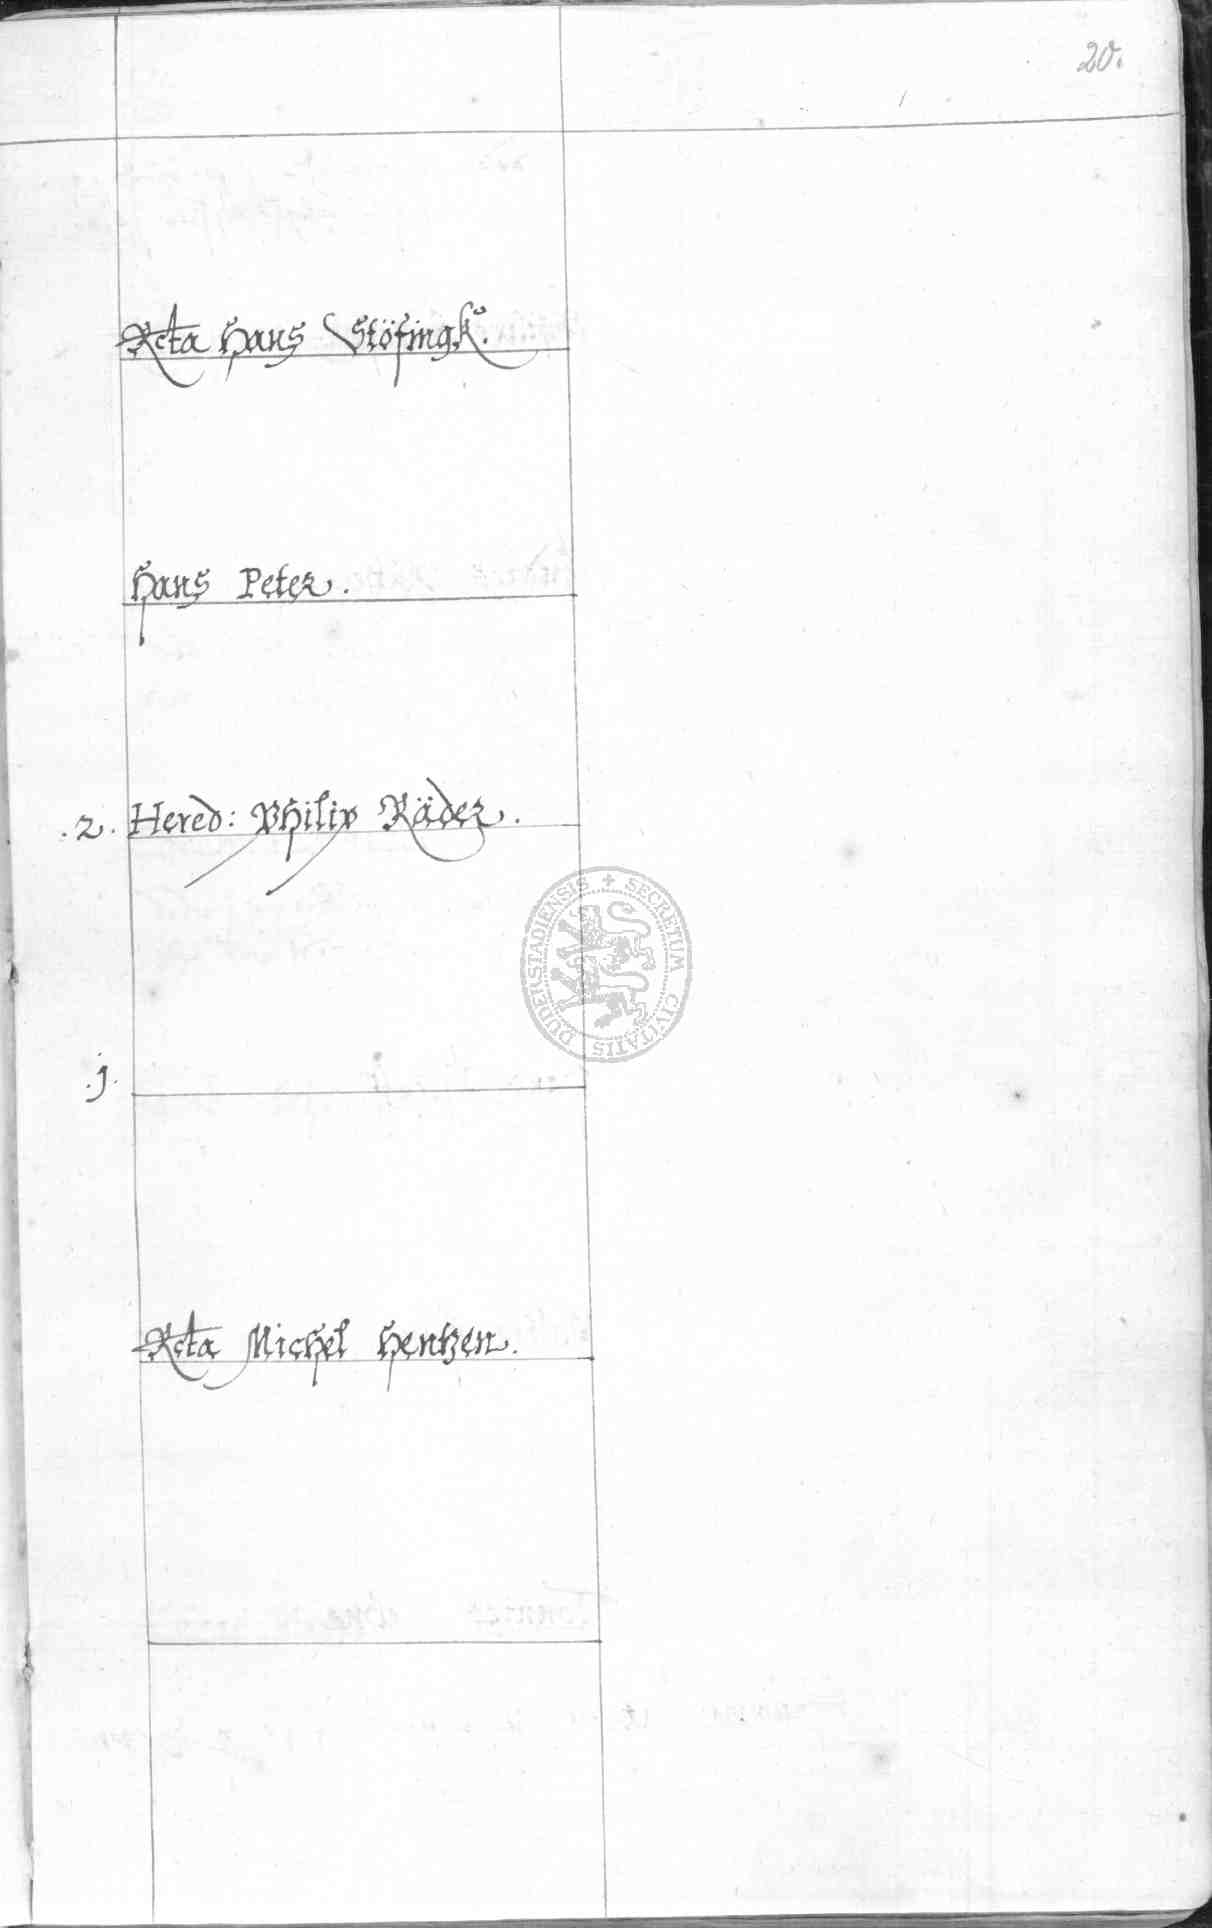 20.
Rcta Hans Stöfingk.
Hans Peter.
.2. Hered: Philip Räder.
DUDERSTADIENSIS + SECRETUM CIVITATIS
.j.
Rcta Michel Hentzen.